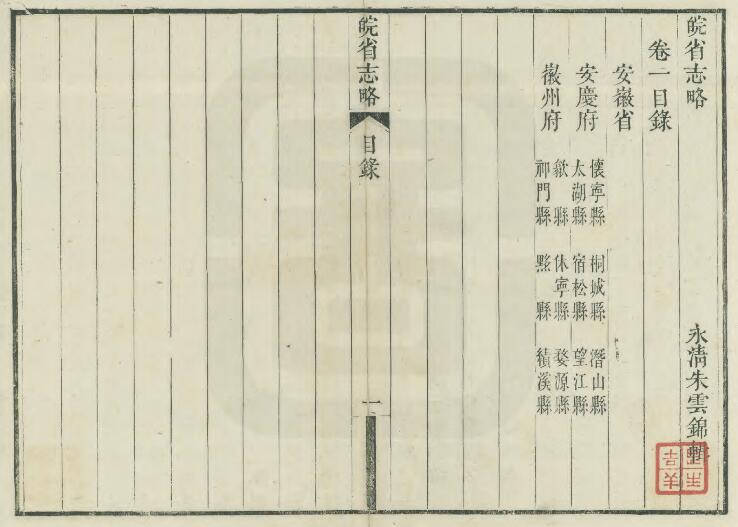 皖省志略
永清朱雲錦輯
卷一目錄
安徽省
安慶府
懷寧縣 桐城縣 潛山縣
太湖縣 宿松縣 望江縣
徽州府
歙縣 休寧縣 婺源縣
祁門縣 黟縣 績溪縣
皖省志略
目錄
一